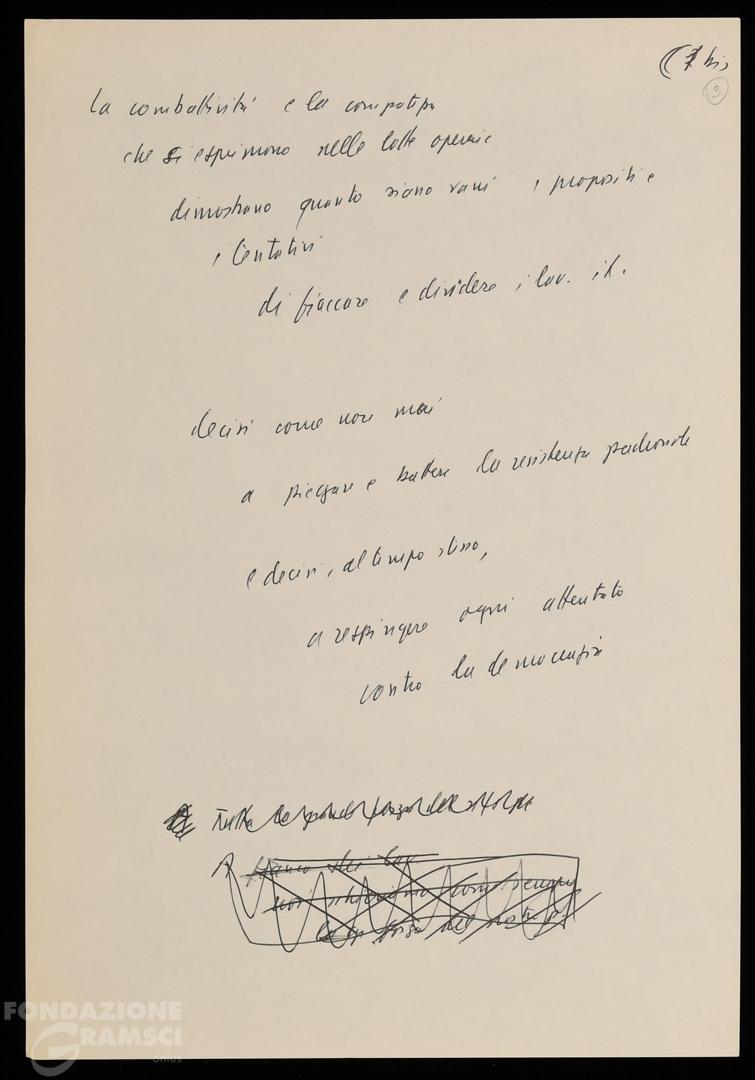 (1 bis
3
La combattività e la compattezza
che si esprimono nelle lotte operaie
dimostrano quanto siano vani i propositi e
i tentativi
di fiaccare e dividere i lav. it.
decisi come non mai
a piegare e battere la resistenza padronale
e decisi, al tempo stesso,
a respingere ogni attentato
contro la democrazia
Tutta la
A fianco dei lav.
noi schieriamo, come sempre
la forza del nostro p.
FONDAZIONE
GRAMSCI
onlus